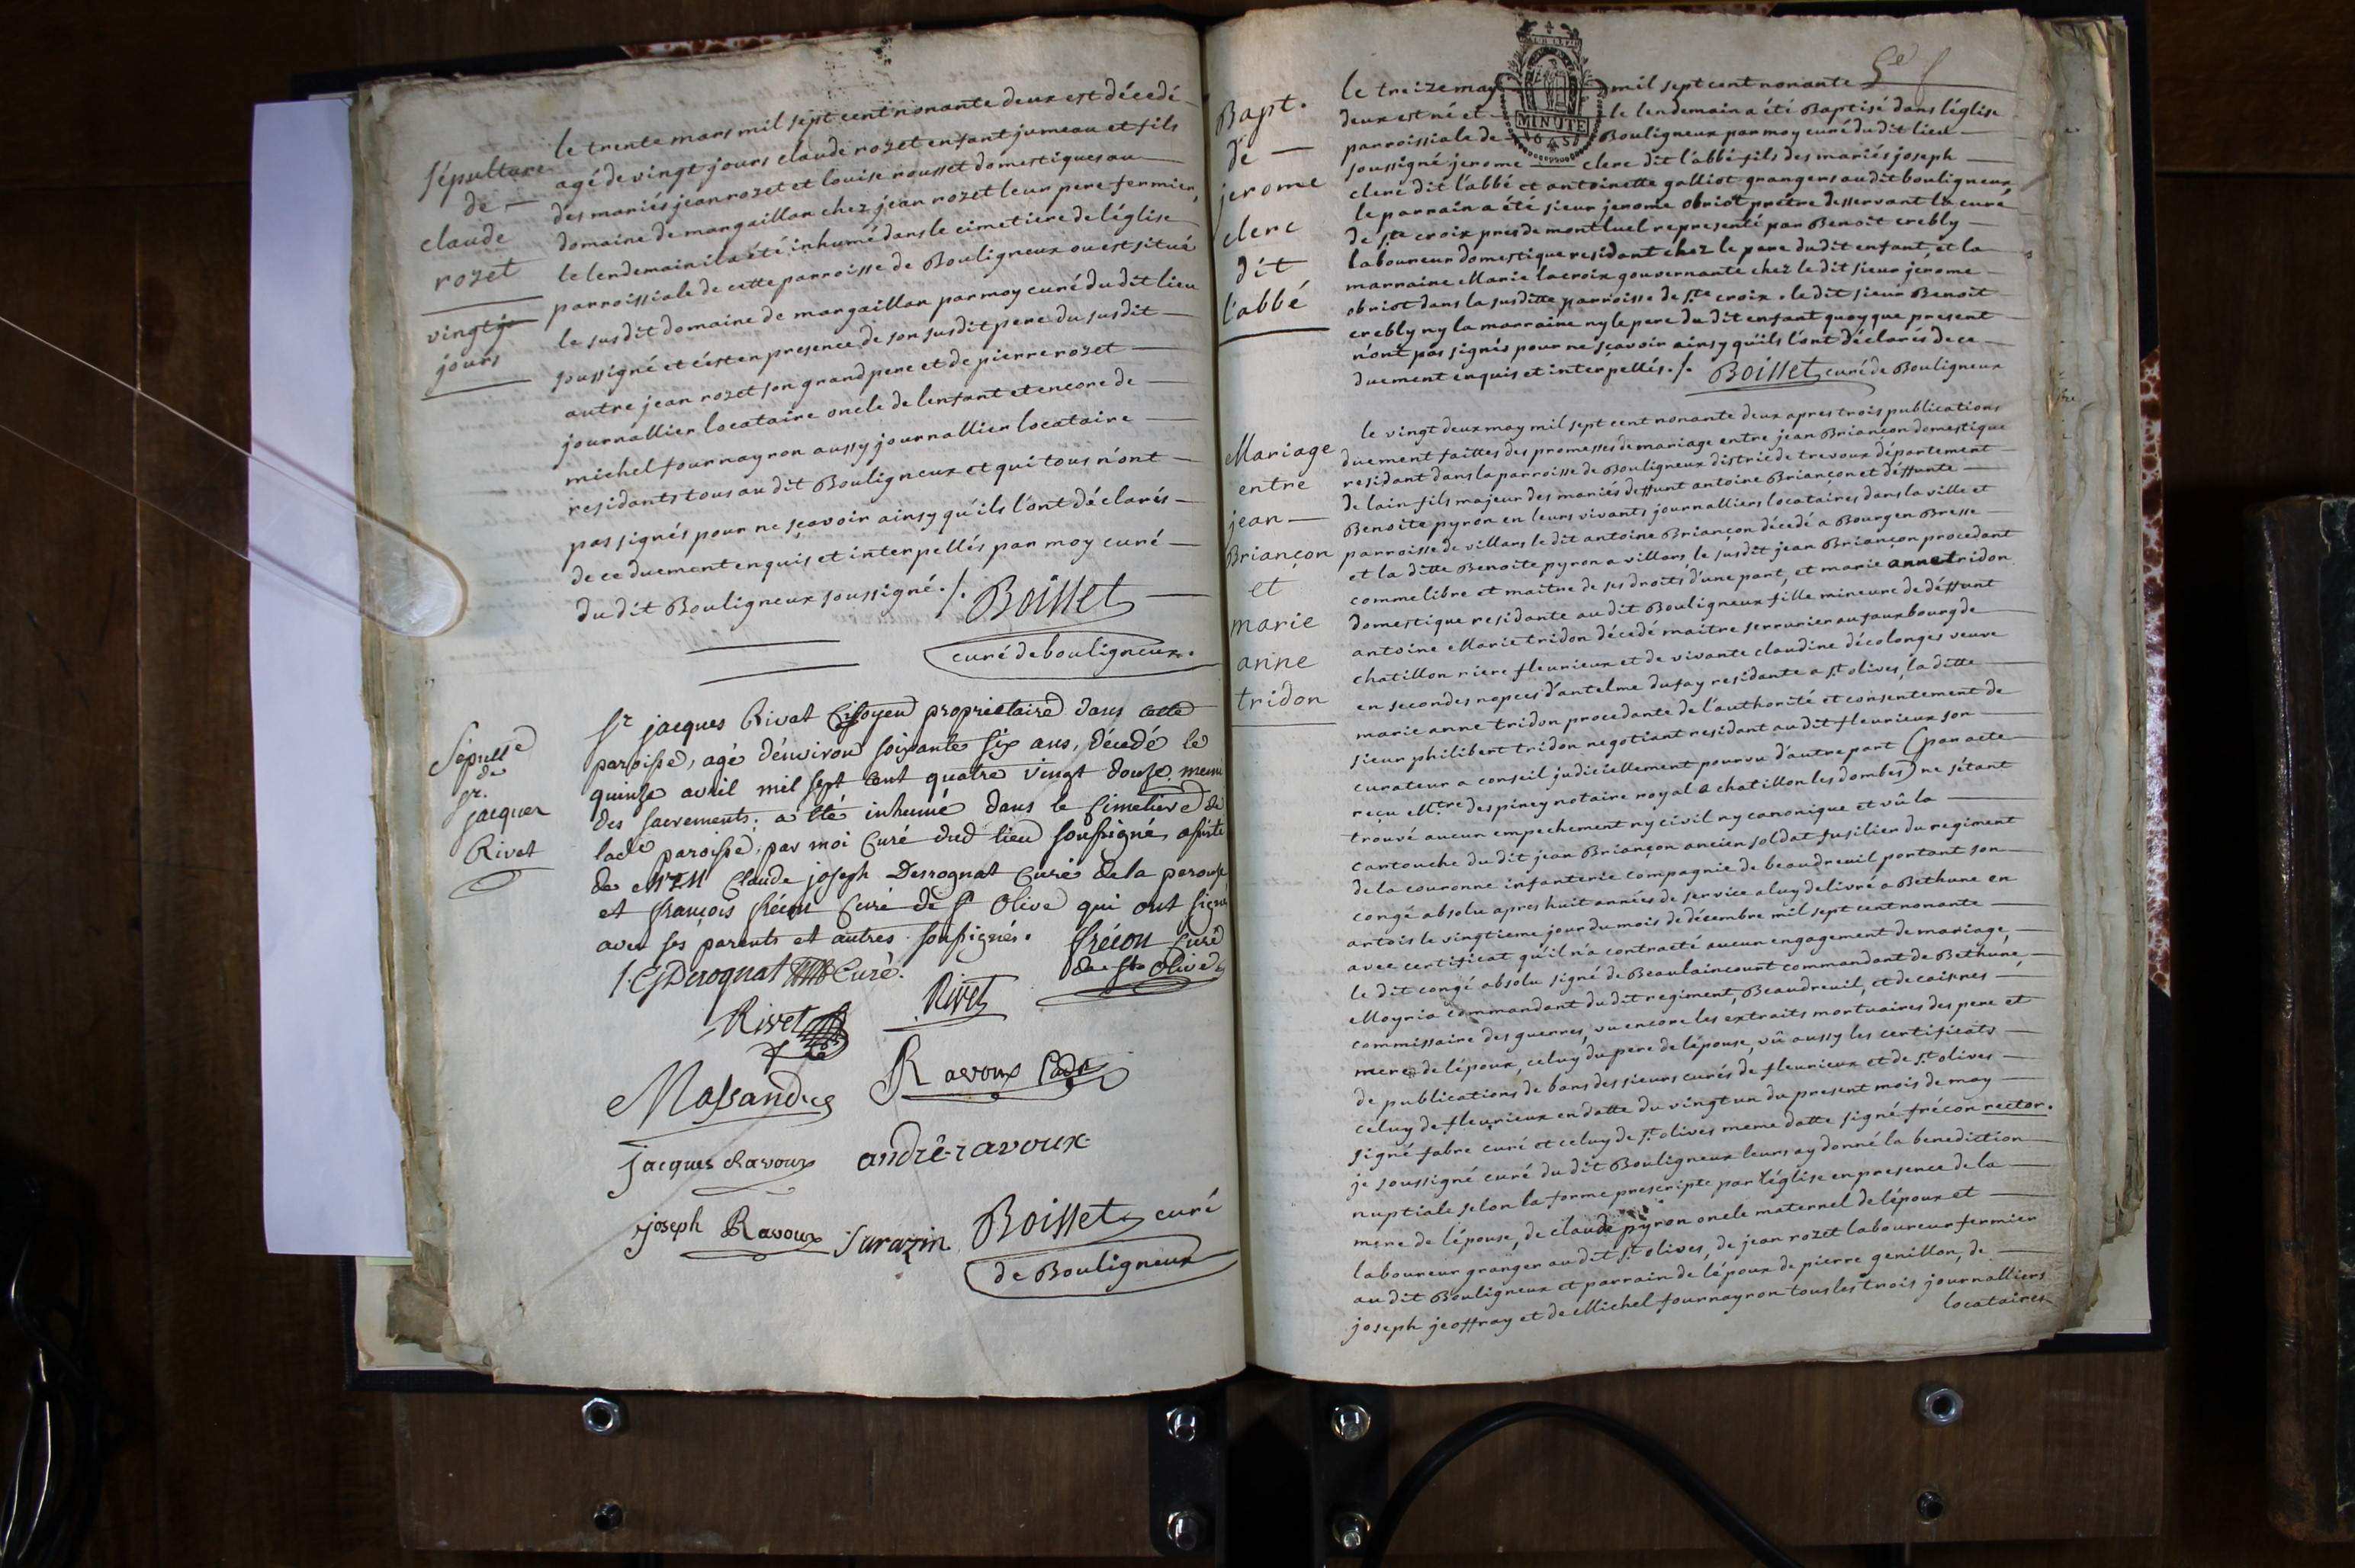 Sépulture
de —
claude
rozet
vingt
jours
le trente mars mil sept cent nonante deux est décedé
agé de vingt jours claude rozet enfant jumeau et fils
des mariés jean rozet et louise rousset domestiques au
domaine de mangaillan chez jean rozet leur pere fermier,
le lendemain il a été inhumé dans le cimetiere de léglise
parroissiale de cette parroisse de Bouligneux ou est situé
le susdit domaine de mangaillan par moy curé du dit lieu
soussigné et c'est en presence de son susdit pere du susdit
autre jean rozet son grand pere et de pierre rozet
journallier locataire oncle de lenfant et encore de
michel fournayron aussy journallier locataire
residants tous au dit Bouligneux et qui tous n'ont
pas signés pour ne sçavoir ainsy qu'ils l'ont déclarés
de ce duement enquis et interpellés par moy curé
du dit Bouligneux soussigné./. Boisset
curé de bouligneux.
Sépulre
de
Sr.
jacques
Rivet
Sr jacques Rivat Citoyen propriétaire dans cette
paroisse, agé d'environ soixante six ans, décedé le
quinze avril mil sept cent quatre vingt douse, muni
des sacrements, a été inhumé dans le Cimetière de
lade paroisse, par moi Curé dud lieu soussigné, assisté
de Claude joseph Derrognat Curé de la perouse
et françois frécon Curé de St Olive qui ont signé
avec ses parents et autres soussignés. frécon Curé
de St Olive
Derognat Curé.
Rivet
Rivet
Massandre
Ravoux Cadet
jacques Ravoux
andré ravoux
joseph Ravoux
Sarazin
Boisset curé
de Bouligneux
5e f
Bapt.
de —
jerome
clerc
dit
l'abbé
le treize may mil sept cent nonante
deux est né et le lendemain a été Baptisé dans léglise
parroissiale de Bouligneux par moy curé du dit lieu
MINUTE
soussigné jerome clerc dit l'abbé fils des mariés joseph
clerc dit l'abbé et antoinette galliot grangers au dit bouligneux,
le parrain a été sieur jerome obriot prêtre desservant la cure
de Ste croix près de montluel representé par Benoit crebly
laboureur domestique residant chez le pere du dit enfant, et la
marraine Marie lacroix gouvernante chez le dit sieur jérome
obriot dans la susditte parroisse de Ste croix. le dit sieur Benoit
crebly ny la marraine ny le pere du dit enfant quoy que present
n'ont pas signés pour ne sçavoir ainsy qu'ils l'ont déclarés de ce
duement enquis et interpellés./. Boisset curé de Bouligneux
Mariage
entre
jean —
Briançon
et
marie
anne
tridon
le vingt deux may mil sept cent nonante deux apres trois publications
duement faittes des promesses de mariage entre jean Briançon domestique
residant dans la parroisse de Bouligneux district de trevoux département
de lain fils majeur des mariés deffunt antoine Briançon et déffunte
Benoite pyron en leurs vivants journalliers locataires dans la ville et
parroisse de villars le dit antoine Briançon décedé a Bourg en Bresse
et la ditte Benoite pyron a villars, le susdit jean Briançon procedant
comme libre et maitre de ses droits d'une part, et marie anne tridon
domestique residante au dit Bouligneux fille mineure de déffunt
antoine Marie tridon décedé maitre serrurier au fauxbourg de
chatillon riere fleurieux et de vivante claudine décolonges veuve
en secondes nopces d'antelme dufay residante a St olives, la ditte
marie anne tridon procedante de l'authorité et consentement de
sieur philibert tridon negotiant residant au dit fleurieux son
curateur a conseil judiciellement pourvu d'autre part (par acte
reçu Mtre despiney notaire royal a chatillon les dombes) ne s'étant
trouvé aucun empechement ny civil ny canonique et vû la
cartouche du dit jean Briançon ancien soldat fusilier du regiment
de la couronne infanterie compagnie de beaudreuil portant son
congé absolu apres huit années de service a luy delivré a Bethune en
artois le vingtieme jour du mois de décembre mil sept cent nonante
avec certificat qu'il n'a contracté aucun engagement de mariage,
le dit congé absolu signé de Beaulaincourt commandant de Bethune,
Moyria commandant du dit regiment, Beaudreuil, et decaisnes
commissaire des guerres, vu encore les extraits mortuaires des pere et
mere de lépoux, celuy du pere de lépouse, vû aussy les certificats
de publications de bans des sieurs curés de fleurieux et de St olives
celuy de fleurieux en datte du vingt un du present mois de may
signé fabre curé et celuy de St olives meme datte signé frécon rector.
je soussigné curé du dit Bouligneux leurs ay donné la benediction
nuptiale selon la forme prescripte par l'église en presence de la
mere de lépouse, de claude pyron oncle maternel de lépoux et
laboureur granger au dit St olives, de jean rozet laboureur fermier
au dit Bouligneux et parrain de lépoux de pierre genillon, de
joseph jeoffray et de Michel fournayron tous les trois journalliers
locataires